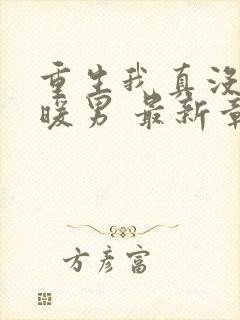 重生我真没
暖男 最新章
方彦富